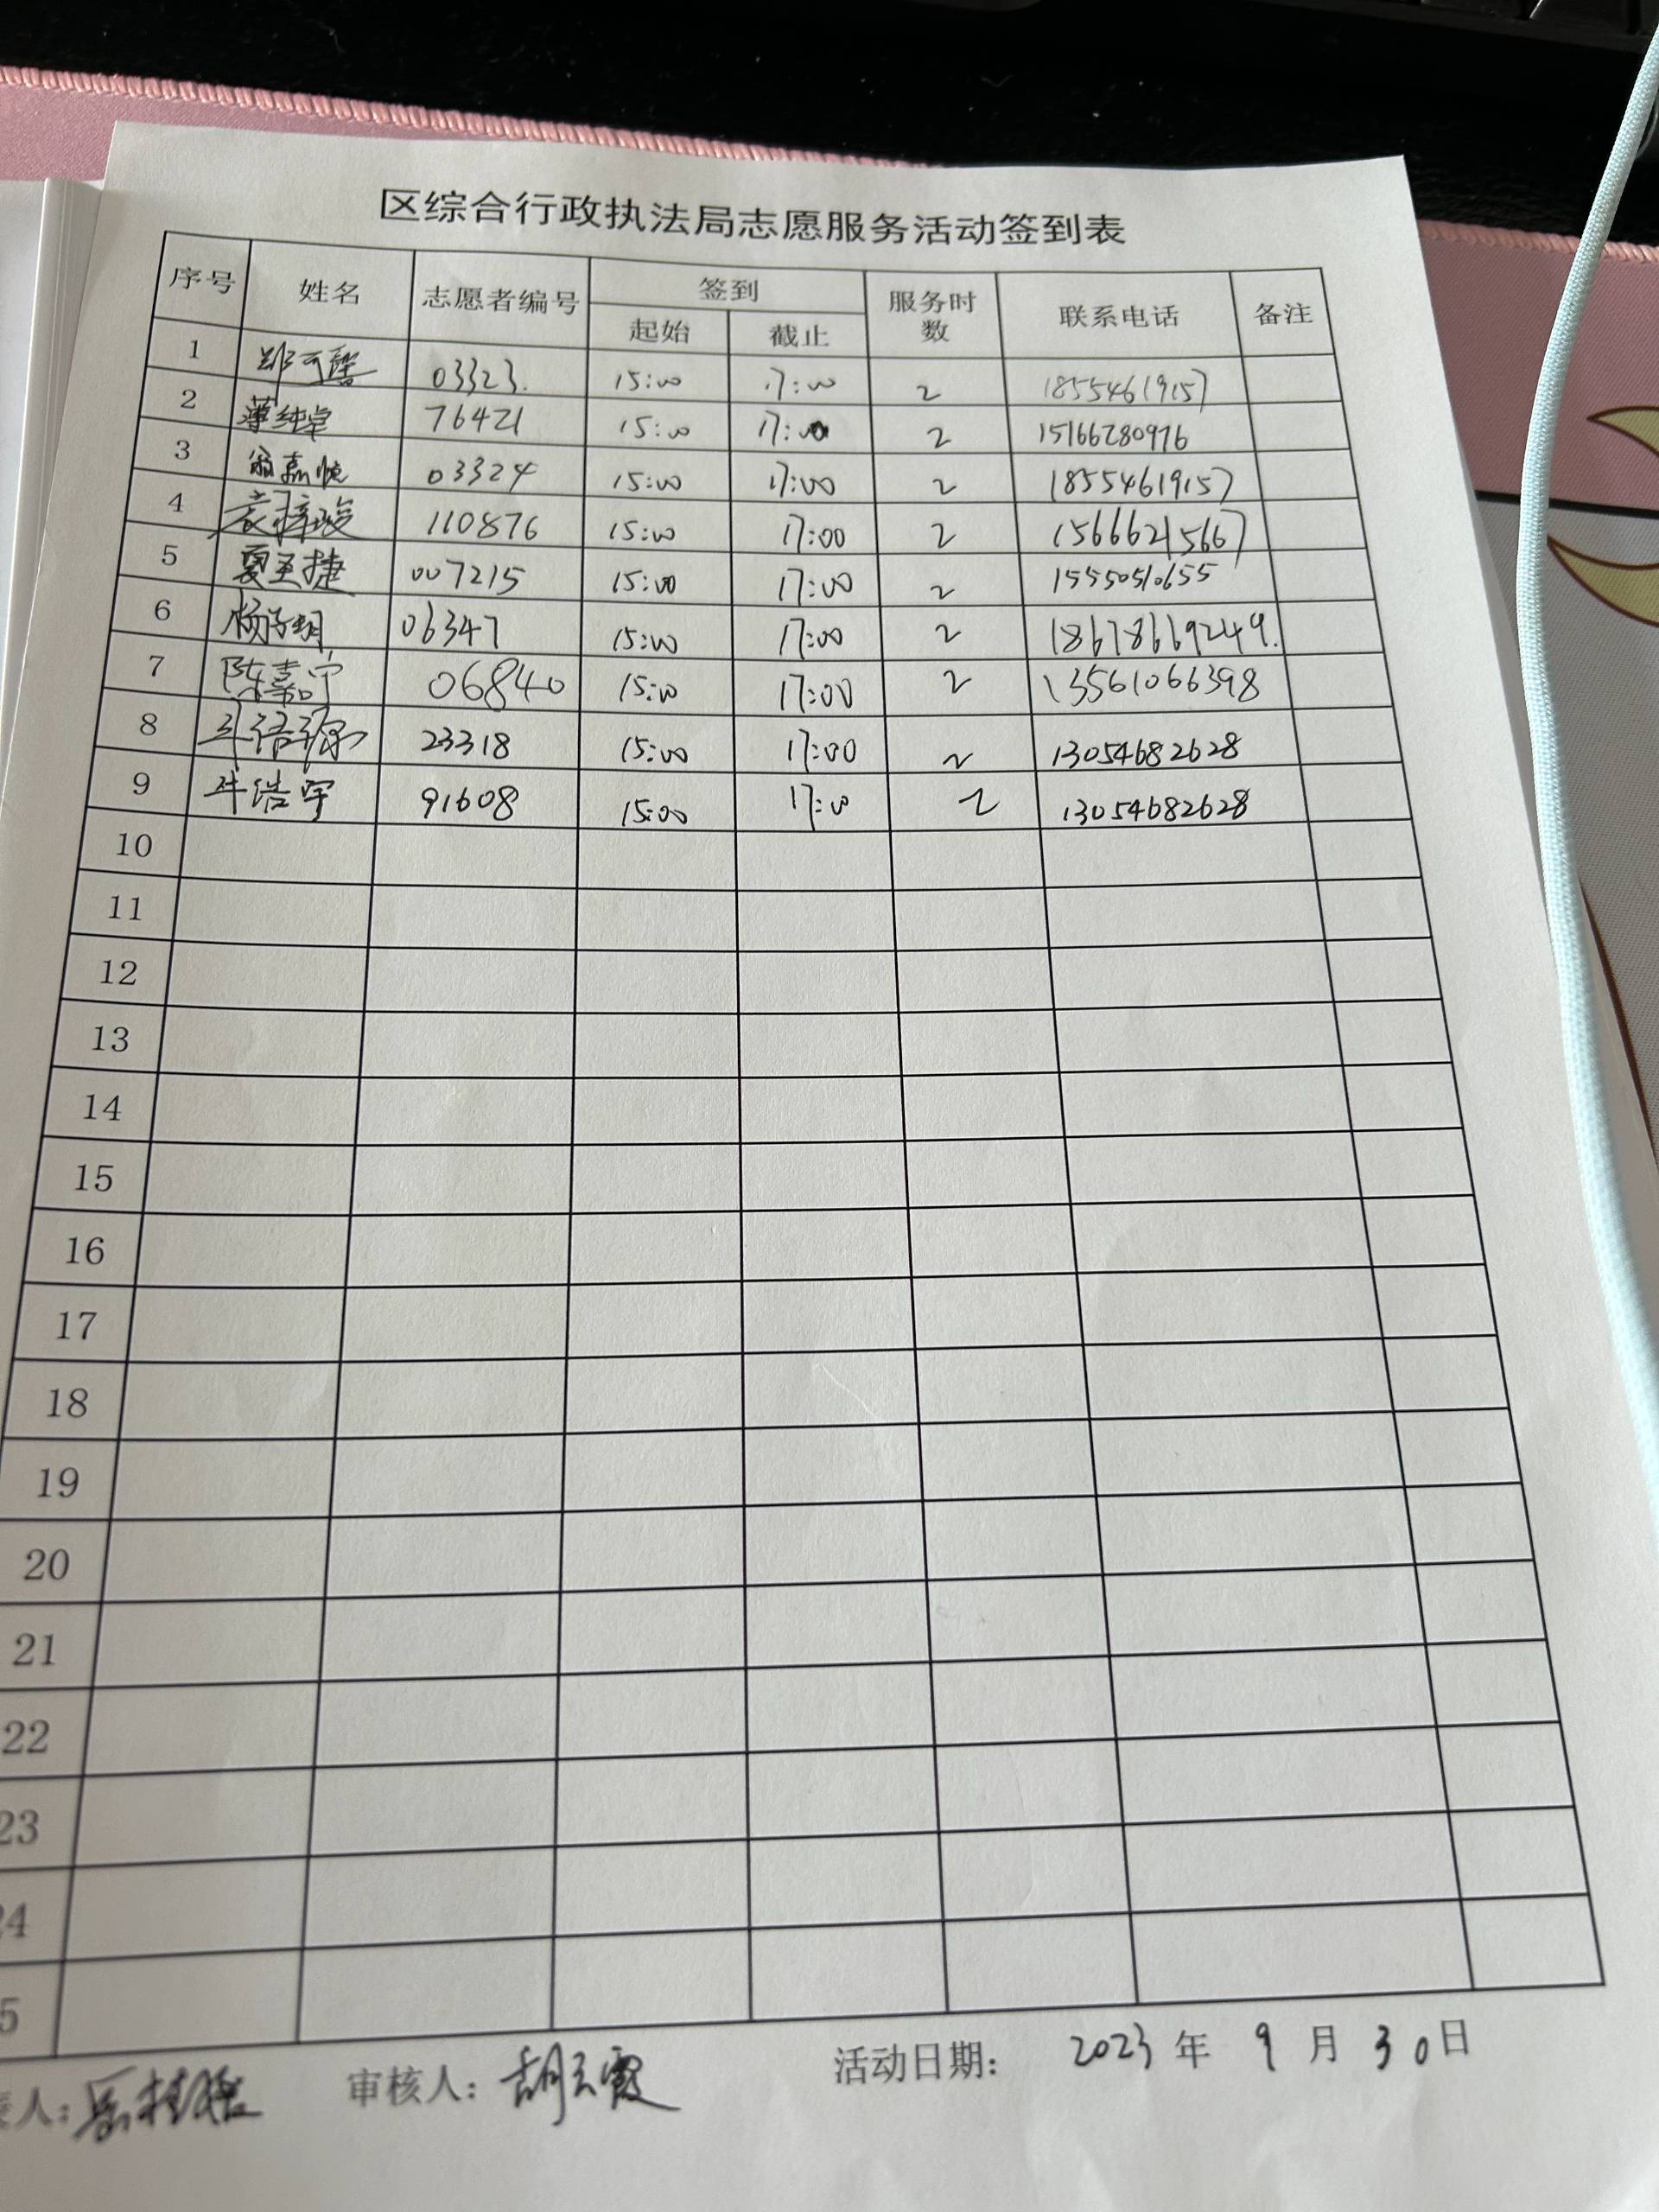 区综合行政执法局志愿服务活动签到表
序号 姓名 志愿者编号 签到 服务时数 联系电话 备注
起始 截止
1 郑可馨 03323. 15:00 17:00 2 18554619157
2 薄纯卓 76421 15:00 17:00 2 15166280976
3 翁嘉悦 03324 15:00 17:00 2 18554619157
4 袁梓骏 110876 15:00 17:00 2 15666215667
5 夏圣捷 007215 15:00 17:00 2 15550510655
6 杨子玥 06347 15:00 17:00 2 18678669249.
7 陈嘉宁 06840 15:00 17:00 2 13561066398
8 23318 15:00 17:00 2 13054682628
9 牛浩宇 91608 15:00 17:00 2 13054682628
10
11
12
13
14
15
16
17
18
19
20
21
22
23
24
5
人: 审核人: 胡云霞 活动日期: 2023 年 9 月 30 日